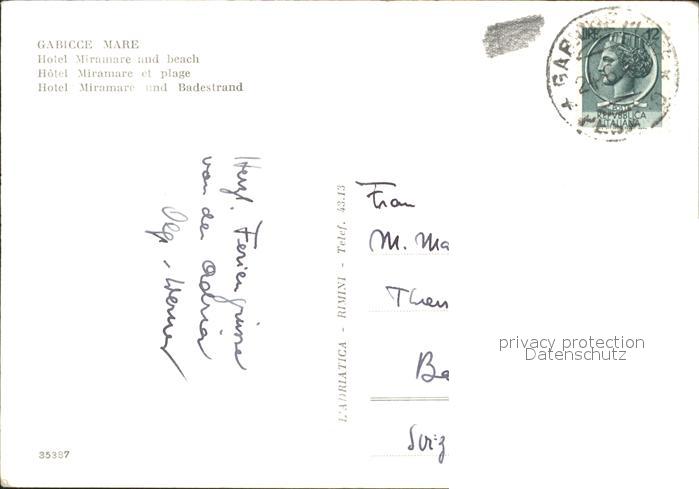 GABICCE MARE
Hotel Miramare and beach
Hôtel Miramare et plage
Hotel Miramare und Badestrand
LIRE 12
POSTE
REPVBBLICA
ITALIANA
Herzl. Feriengrüsse
von der Adria
Werner
L'ADRIATICA - RIMINI - Telef. 43.13
Frau
M. Ma
Ba
privacy protection
Datenschutz
35387